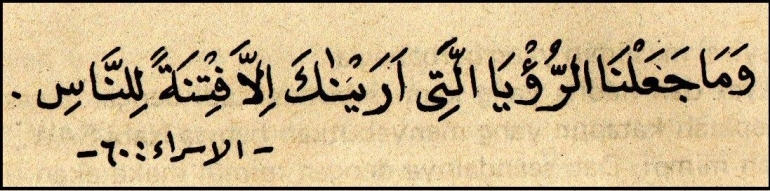 وَمَا جَعَلْنَا الرُّؤْيَا الَّتِى اَرَيْنٰكَ اِلاَّ فِتْنَةً لِلنَّاسِ .
- الاسراء : ٦٠ -